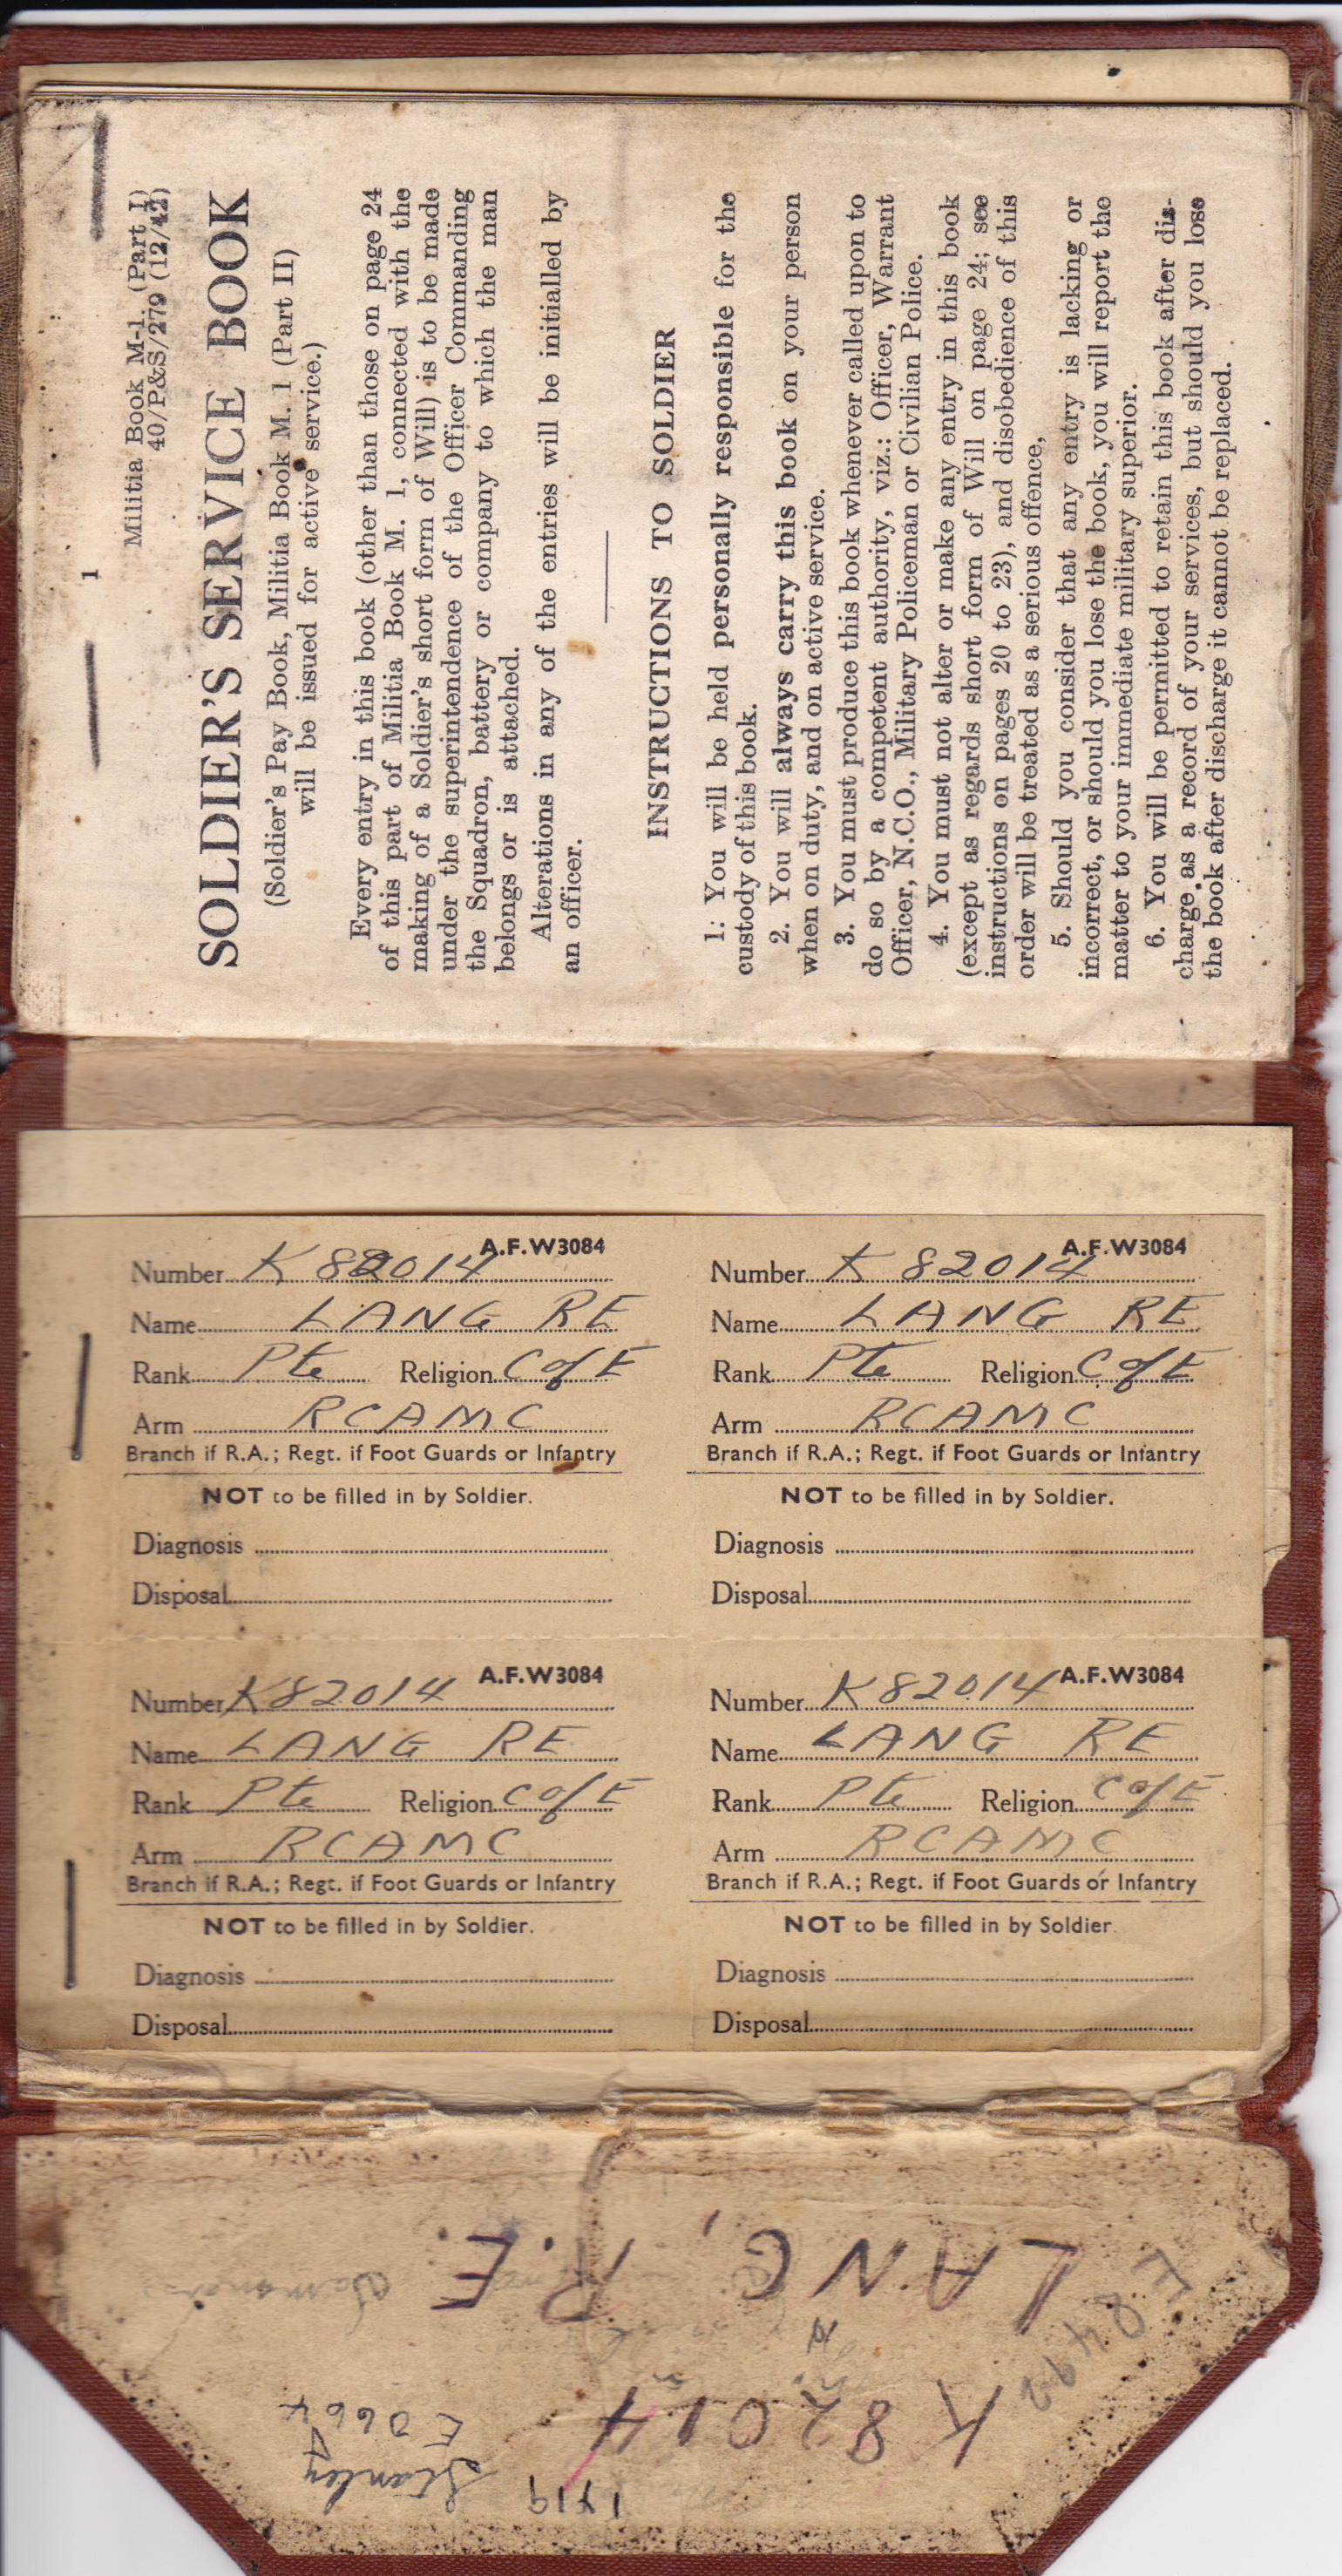 1
Militia Book M-1. (Part I)
40/P&S/279 (12/42)
SOLDIER'S SERVICE BOOK
(Soldier's Pay Book, Militia Book M. 1 (Part II)
will be issued for active service.)
Every entry in this book (other than those on page 24
of this part of Militia Book M. 1, connected with the
making of a Soldier's short form of Will) is to be made
under the superintendence of the Officer Commanding
the Squadron, battery or company to which the man
belongs or is attached.
Alterations in any of the entries will be initialled by
an officer.
INSTRUCTIONS TO SOLDIER
1: You will be held personally responsible for the
custody of this book.
2. You will always carry this book on your person
when on duty, and on active service.
3. You must produce this book whenever called upon to
do so by a competent authority, viz.: Officer, Warrant
Officer, N.C.O., Military Policeman or Civilian Police.
4. You must not alter or make any entry in this book
(except as regards short form of Will on page 24; see
instructions on pages 20 to 23), and disobedience of this
order will be treated as a serious offence,
5. Should you consider that any entry is lacking or
incorrect, or should you lose the book, you will report the
matter to your immediate military superior.
6. You will be permitted to retain this book after dis-
charge as a record of your services, but should you lose
the book after discharge it cannot be replaced.
A.F.W3084
Number K 82014
Name LANG RE
Rank Pte Religion C of E
Arm RCAMC
Branch if R.A.; Regt. if Foot Guards or Infantry
NOT to be filled in by Soldier.
Diagnosis
Disposal
A.F.W3084
Number K 82014
Name LANG RE
Rank Pte Religion C of E
Arm RCAMC
Branch if R.A.; Regt. if Foot Guards or Infantry
NOT to be filled in by Soldier.
Diagnosis
Disposal
A.F.W3084
Number K82014
Name LANG RE
Rank Pte Religion C of E
Arm RCAMC
Branch if R.A.; Regt. if Foot Guards or Infantry
NOT to be filled in by Soldier.
Diagnosis
Disposal
A.F.W3084
Number K82014
Name LANG RE
Rank Pte Religion C of E
Arm RCAMC
Branch if R.A.; Regt. if Foot Guards or Infantry
NOT to be filled in by Soldier.
Diagnosis
Disposal
Stanley
K 82014
E 8492
LANG, R.E.